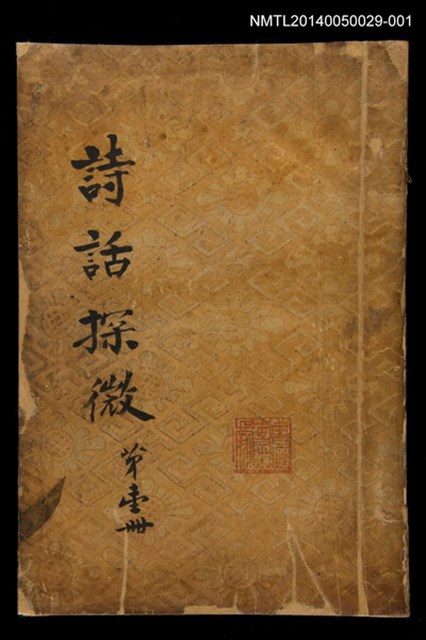 NMTL20140050029-001
詩話探微
第壹冊